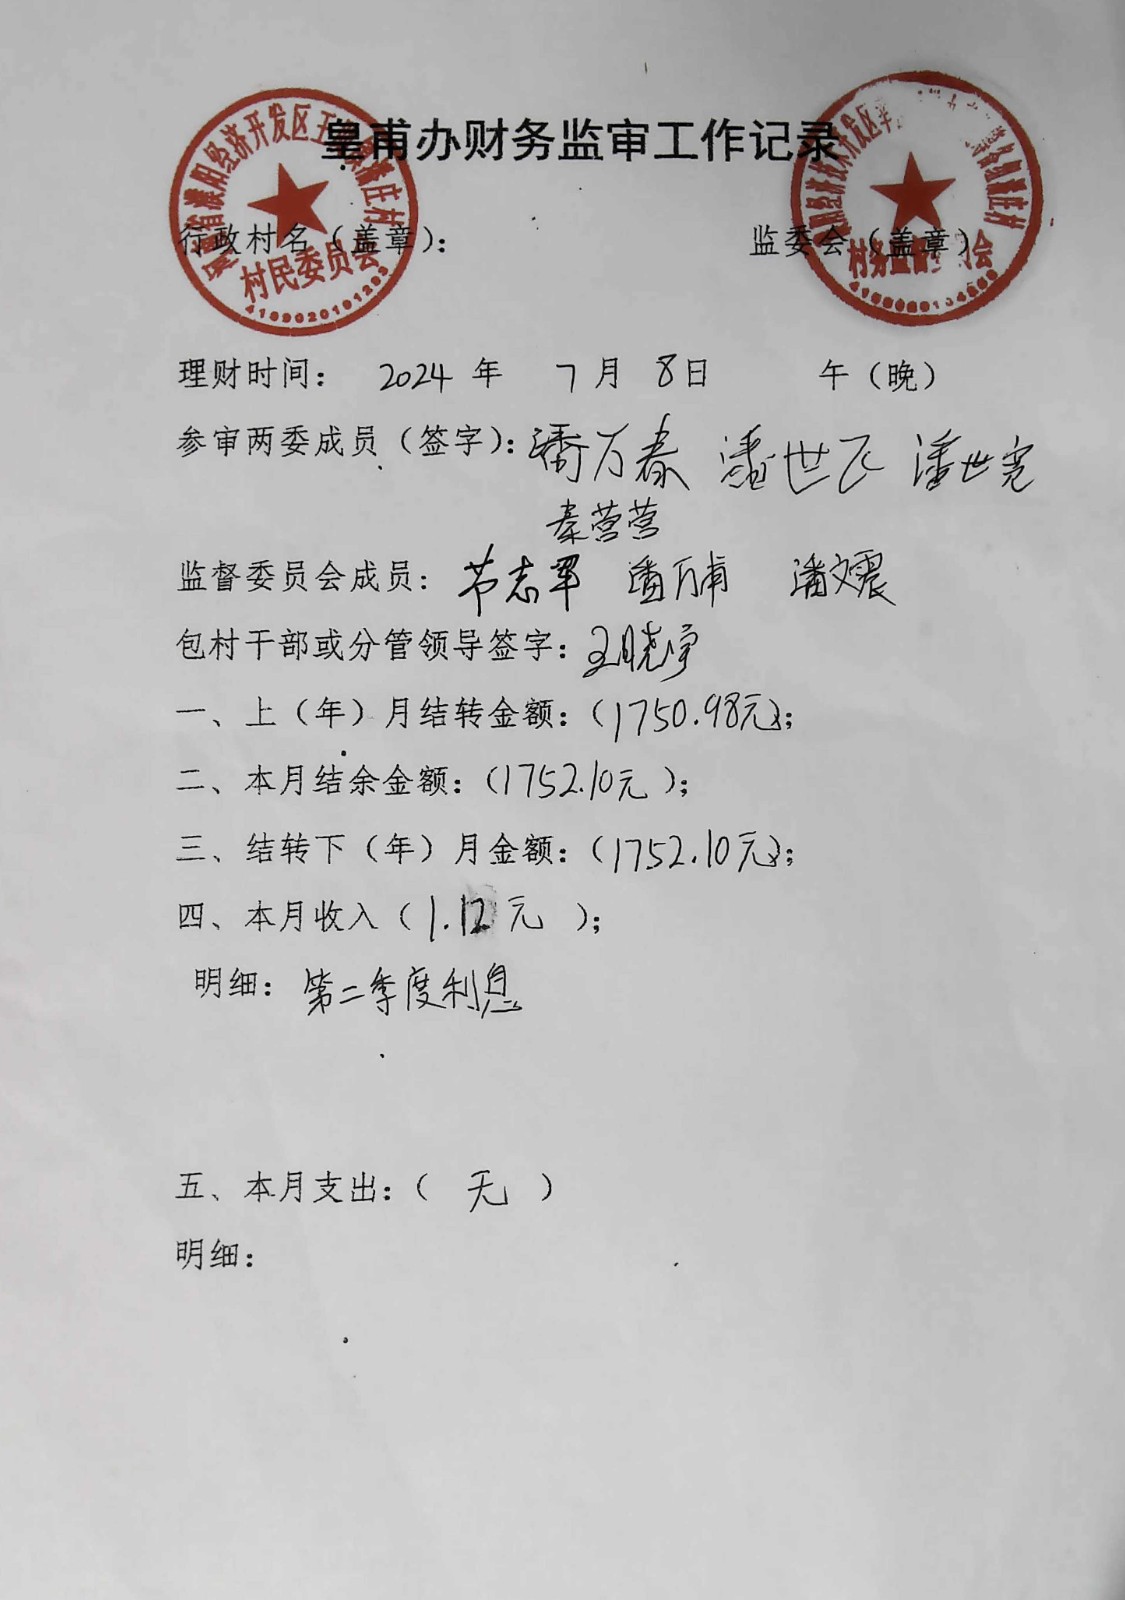 皇甫办财务监审工作记录
行政村名（盖章）：
村民委员会
4109020101293
监委会（盖章）
理财时间： 2024 年 7 月 8 日 午（晚）
参审两委成员（签字）：潘万春 潘世飞 潘世尧
秦营营
监督委员会成员： 志军 潘万甫 潘文震
包村干部或分管领导签字：王晓宇
一、上（年）月结转金额：（1750.98元）；
二、本月结余金额：（1752.10元 ）；
三、结转下（年）月金额：（1752.10元）；
四、本月收入（1.12元 ）；
明细： 第二季度利息
五、本月支出：（ 无 ）
明细：